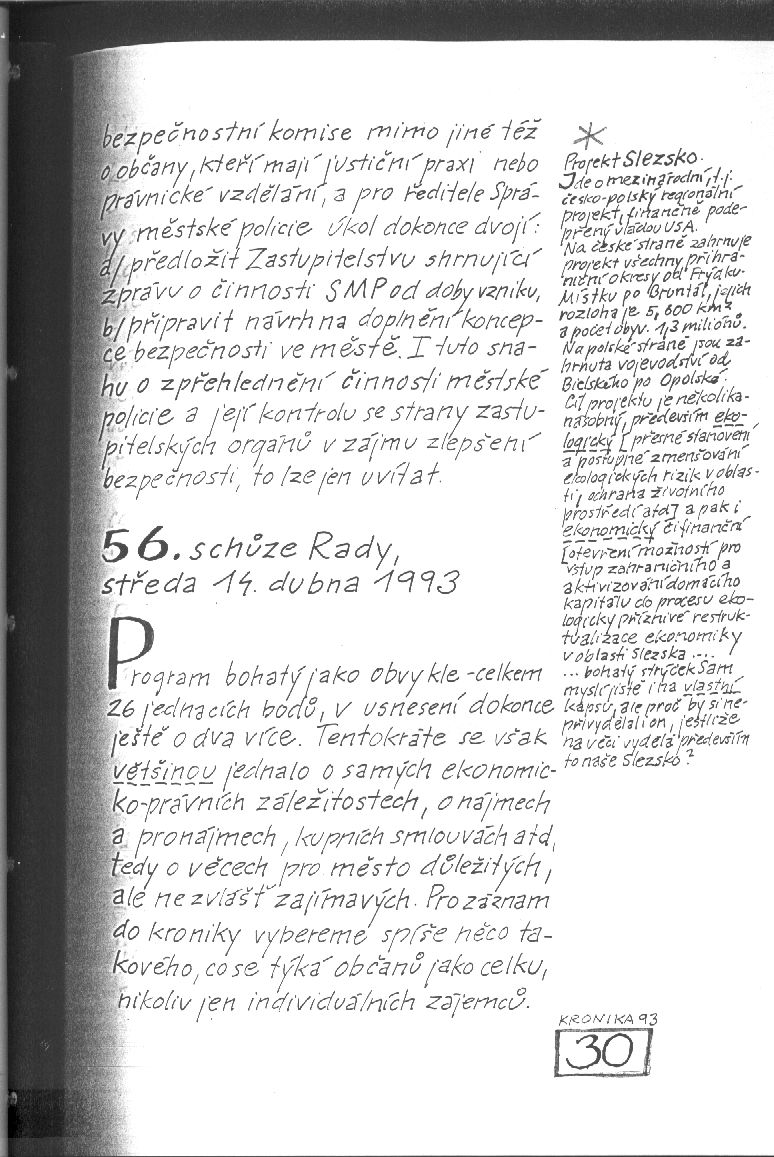 bezpečnostní komise mimo jiné též
o občany, kteří mají justiční praxi nebo
právnické vzdělání, a pro ředitele Sprá-
vy městské policie úkol dokonce dvojí:
a/ předložit Zastupitelstvu shrnující
zprávu o činnosti SMP od doby vzniku,
b/ připravit návrh na doplnění koncep-
ce bezpečnosti ve městě. I tuto sna-
hu o zpřehlednění činnosti městské
policie a její kontrolu se strany zastu-
pitelských orgánů v zájmu zlepšení
bezpečnosti, to lze jen uvítat.
56. schůze Rady,
středa 14. dubna 1993
Program bohatý jako obvykle - celkem
26 jednacích bodů, v usnesení dokonce
ještě o dva více. Tentokráte se však
většinou jednalo o samých ekonomic-
ko-právních záležitostech, o nájmech
a pronájmech, kupních smlouvách atd,
tedy o věcech pro město důležitých,
ale ne zvlášť zajímavých. Pro záznam
do kroniky vybereme spíše něco ta-
kového, co se týká občanů jako celku,
nikoliv jen individuálních zájemců.
*
Projekt Slezsko.
Jde o mezinárodní, t.j.
česko-polský regionální
projekt, finančně pode-
přený vládou USA.
Na české straně zahrnuje
projekt všechny příhra-
niční okresy od Frýdku-
Místku po Bruntál, jejich
rozloha je 5,600 km²
a počet obyv. 1,3 milionů.
Na polské straně jsou za-
hrnuta vojevodství od
Bielského po Opolské.
Cíl projektu je několika-
násobný, především eko-
logický [přesné stanovení
a postupné zmenšování
ekologických rizik v oblas-
ti, ochrana životního
prostředí atd] a pak i
ekonomický či finanční
[otevření možností pro
vstup zahraničního a
aktivizování domácího
kapitálu do procesu eko-
logicky příznivé restruk-
tualizace ekonomiky
v oblasti Slezska ....
... bohatý strýček Sam
myslí jistě i na vlastní
kapsu, ale proč by si ne-
přivydělal i on, jestliže
na věci vydělá především
to naše Slezsko?
KRONIKA 93
30